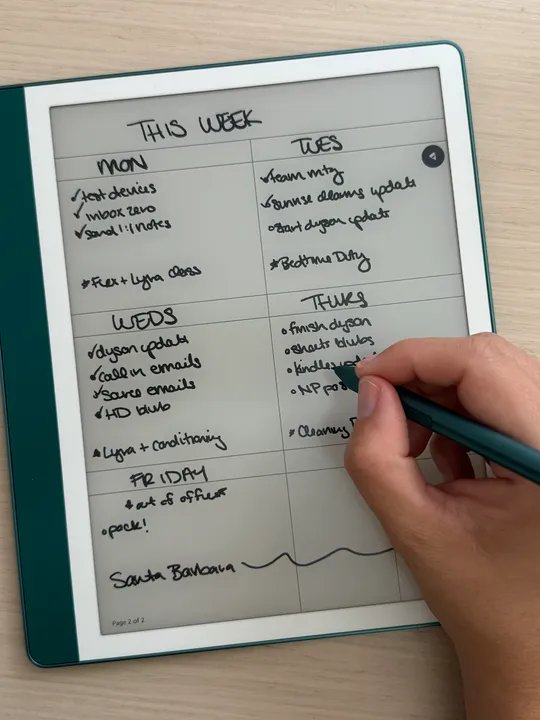 THIS WEEK
MON
✓test devices
✓inbox zero
✓send 1:1 notes
*Flex + Lyra class
TUES
✓team mtg
✓sunrise alarms update
○start dyson update
*Bedtime Duty
WEDS
✓dyson update
✓call in emails
✓Saree emails
✓HD blurb
*Lyra + conditioning
THURS
○finish dyson
○sheets blubs
○kindle
○NP
*Cleaning
FRIDAY
*out of office*
○pack!
Santa Barbara
Page 2 of 2